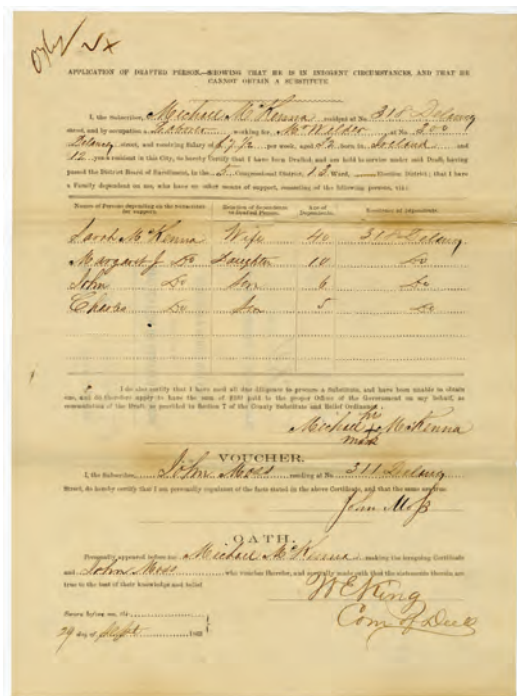 APPLICATION OF DRAFTED PERSON,—SHOWING THAT HE IS IN INDIGENT CIRCUMSTANCES, AND THAT HE
CANNOT OBTAIN A SUBSTITUTE.
I, the Subscriber, Michael McKenna resident at No. 318 Delancy
street, and by occupation a Laborer working for Mr Wilder at No. 300
Delancy street, and receiving Salary of $7 1/2 per week, aged 32 born in Ireland and
12 years a resident in this City, do hereby Certify that I have been Drafted, and am held to service under said Draft, having
passed the District Board of Enrollment, in the 5 Congressional District, 13 Ward, Election District; that I have
a Family dependent on me, who have no other means of support, consisting of the following persons, viz:
Names of Persons depending on the Subscriber for support. Relation of Dependents to Drafted Person. Age of Dependents. Residence of Dependents.
Sarah McKenna Wife 40 318 Delancy
Margaret J Do Daughter 10 Do
John Do Son 6 Do
Charles Do Son 5 Do
I do also certify that I have used all due diligence to procure a Substitute, and have been unable to obtain
one, and do therefore apply to have the sum of $300 paid to the proper Officer of the Government on my behalf, as
commutation of the Draft, as provided in Section 7 of the County Substitute and Relief Ordinance.
his
Michael + McKenna
mark
VOUCHER.
I, the Subscriber, John Moss residing at No. 311 Delancy
Street, do hereby certify that I am personally cognizant of the facts stated in the above Certificate, and that the same are true.
John Moss
OATH.
Personally appeared before me Michael McKenna making the foregoing Certificate
and John Moss who vouches therefor, and severally made oath that the statements therein are
true to the best of their knowledge and belief.
W E King
Com of Deeds
Sworn before me, this
29 day of Sept 1863